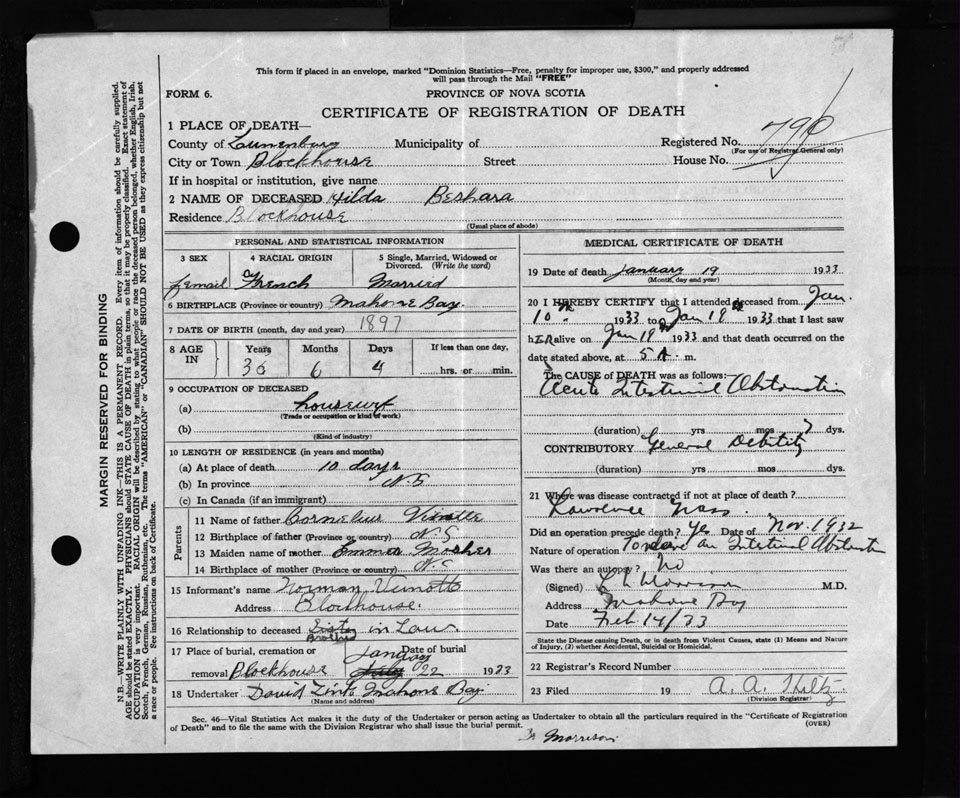 This form if placed in an envelope, marked "Dominion Statistics—Free, penalty for improper use, $300," and properly addressed
will pass through the Mail "FREE"
FORM 6. PROVINCE OF NOVA SCOTIA
CERTIFICATE OF REGISTRATION OF DEATH
1 PLACE OF DEATH—
County of Lunenburg Municipality of Registered No. 790
(For use of Registrar General only)
City or Town Blockhouse Street House No.
If in hospital or institution, give name
2 NAME OF DECEASED Hilda Beshara
Residence Blockhouse
(Usual place of abode)
PERSONAL AND STATISTICAL INFORMATION
3 SEX 4 RACIAL ORIGIN 5 Single, Married, Widowed or
Divorced. (Write the word)
femail French Married
6 BIRTHPLACE (Province or country) Mahone Bay
7 DATE OF BIRTH (month, day and year) 1897
8 AGE IN Years Months Days If less than one day,
36 6 4 hrs. or min.
9 OCCUPATION OF DECEASED
(a) housewf
(Trade or occupation or kind of work)
(b)
(Kind of industry)
10 LENGTH OF RESIDENCE (in years and months)
(a) At place of death 10 days
(b) In province N.S
(c) In Canada (if an immigrant)
Parents
11 Name of father Cornelius
12 Birthplace of father (Province or country) N.S
13 Maiden name of mother Emma Mosher
14 Birthplace of mother (Province or country) N.S
15 Informant's name Norman Veinotte
Address Blockhouse.
16 Relationship to deceased Sister in Law
Brother
17 Place of burial, cremation or Date of burial
January
removal Blockhouse July 22 1933
18 Undertaker David Zink Mahone Bay
(Name and address)
MEDICAL CERTIFICATE OF DEATH
19 Date of death January 19 1933
(Month, day and year)
20 I HEREBY CERTIFY that I attended deceased from Jan.
10th 1933 to Jan 19th 1933 that I last saw
her alive on Jan 19th 1933 and that death occurred on the
date stated above, at 5 A. m.
The CAUSE of DEATH was as follows:
Acute Intestinal Obstruction
(duration) yrs mos 7 dys.
CONTRIBUTORY General Debility
(duration) yrs mos dys.
21 Where was disease contracted if not at place of death?
Lawrence Mass.
Did an operation precede death? Yes Date of Nov. 1932
Nature of operation To relieve an Intestinal Obstruction
Was there an autopsy? No
(Signed) Morrison M.D.
Address Mahone Bay
Date Feb 14/33
State the Disease causing Death, or in death from Violent Causes, state (1) Means and Nature
of Injury, (2) whether Accidental, Suicidal or Homicidal.
22 Registrar's Record Number
23 Filed 19 A. A.
(Division Registrar)
Sec. 46—Vital Statistics Act makes it the duty of the Undertaker or person acting as Undertaker to obtain all the particulars required in the "Certificate of Registration
of Death" and to file the same with the Division Registrar who shall issue the burial permit. (OVER)
Morrison
MARGIN RESERVED FOR BINDING
N.B.—WRITE PLAINLY WITH UNFADING INK—THIS IS A PERMANENT RECORD. Every item of information should be carefully supplied.
AGE should be stated EXACTLY. PHYSICIANS should STATE CAUSE OF DEATH in plain terms, so that it may be properly classified. Exact statement of
OCCUPATION is very important. RACIAL ORIGIN will be described by stating to what people or race the deceased person belonged, whether English, Irish,
Scotch, French, German, Russian, Ruthenian, etc. The terms "AMERICAN" or "CANADIAN" SHOULD NOT BE USED as they express citizenship but not
a race or people. See instructions on back of Certificate.